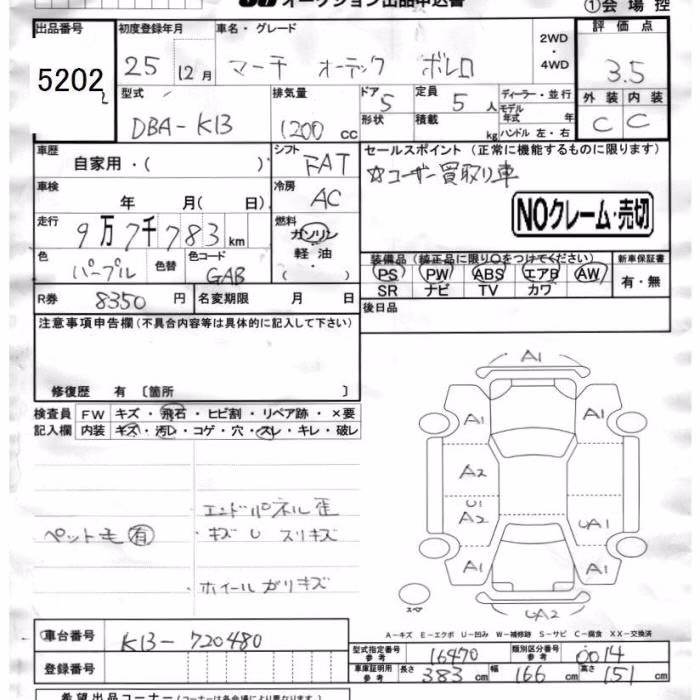 オークション出品申込書
①会場控
出品番号
5202
初度登録年月
25 12月
車名・グレード
マーチ オーテック ボレロ
2WD
・
4WD
評価点
3.5
外装 内装
C C
型式
DBA-K13
排気量
1200 cc
ドア 5
形状
定員 5 人
積載 kg
ディーラー・並行
モデル年式 年
ハンドル 左・右
車歴
自家用・( )
シフト
FAT
車検
年 月( 日)
冷房
AC
走行
9万7千783km
燃料
ガソリン
軽油
・( )
色
パープル
色替
色コード
GAB
セールスポイント (正常に機能するものに限ります)
☆ユーザー買取り車
NOクレーム・売切
装備品 (純正品に限り○をつけてください)
PS PW ABS エアB AW
SR ナビ TV カワ
新車保証書
有・無
R券 8350 円
名変期限 月 日
後日品
注意事項申告欄(不具合内容等は具体的に記入して下さい)
修復歴 有〔箇所 〕
検査員
記入欄
FW キズ・飛石・ヒビ割・リペア跡・×要
内装 キズ・汚レ・コゲ・穴・スレ・キレ・破レ
ペット毛 有
エンドパネル歪
キズ U スリキズ
ホイールガリキズ
A1
A1 A1
A2
U1
A2 UA1
A1 A1
スペア
UA2
A-キズ E-エクボ U-凹み W-補修跡 S-サビ C-腐食 XX-交換済
車台番号
K13-720480
登録番号
型式指定番号
参考
16470
類別区分番号
参考
0014
車庫証明用
参考
長さ 383 cm 幅 166 cm 高さ 151 cm
希望出品コーナー(コーナーは各会場により異なります。)